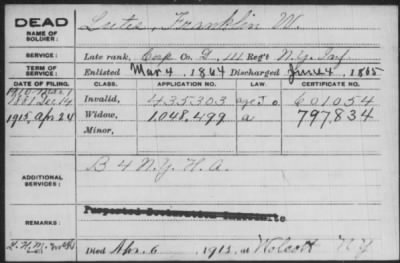 DEAD
NAME OF SOLDIER: Lutes, Franklin W.
SERVICE: Late rank, Corp Co. D, 111 Reg't N.Y. Inf
TERM OF SERVICE: Enlisted Mar 4, 1864 Discharged June 4, 1865
DATE OF FILING. CLASS. APPLICATION NO. LAW. CERTIFICATE NO.
1881 Dec. 14 Invalid, 435.303 601054
1915, Apr 24 Widow, 1.048.499 a 797,834
Minor,
ADDITIONAL SERVICES: B 4 N.Y. H.A.
REMARKS:
Died Apr. 6, 1915, at Wolcott NY